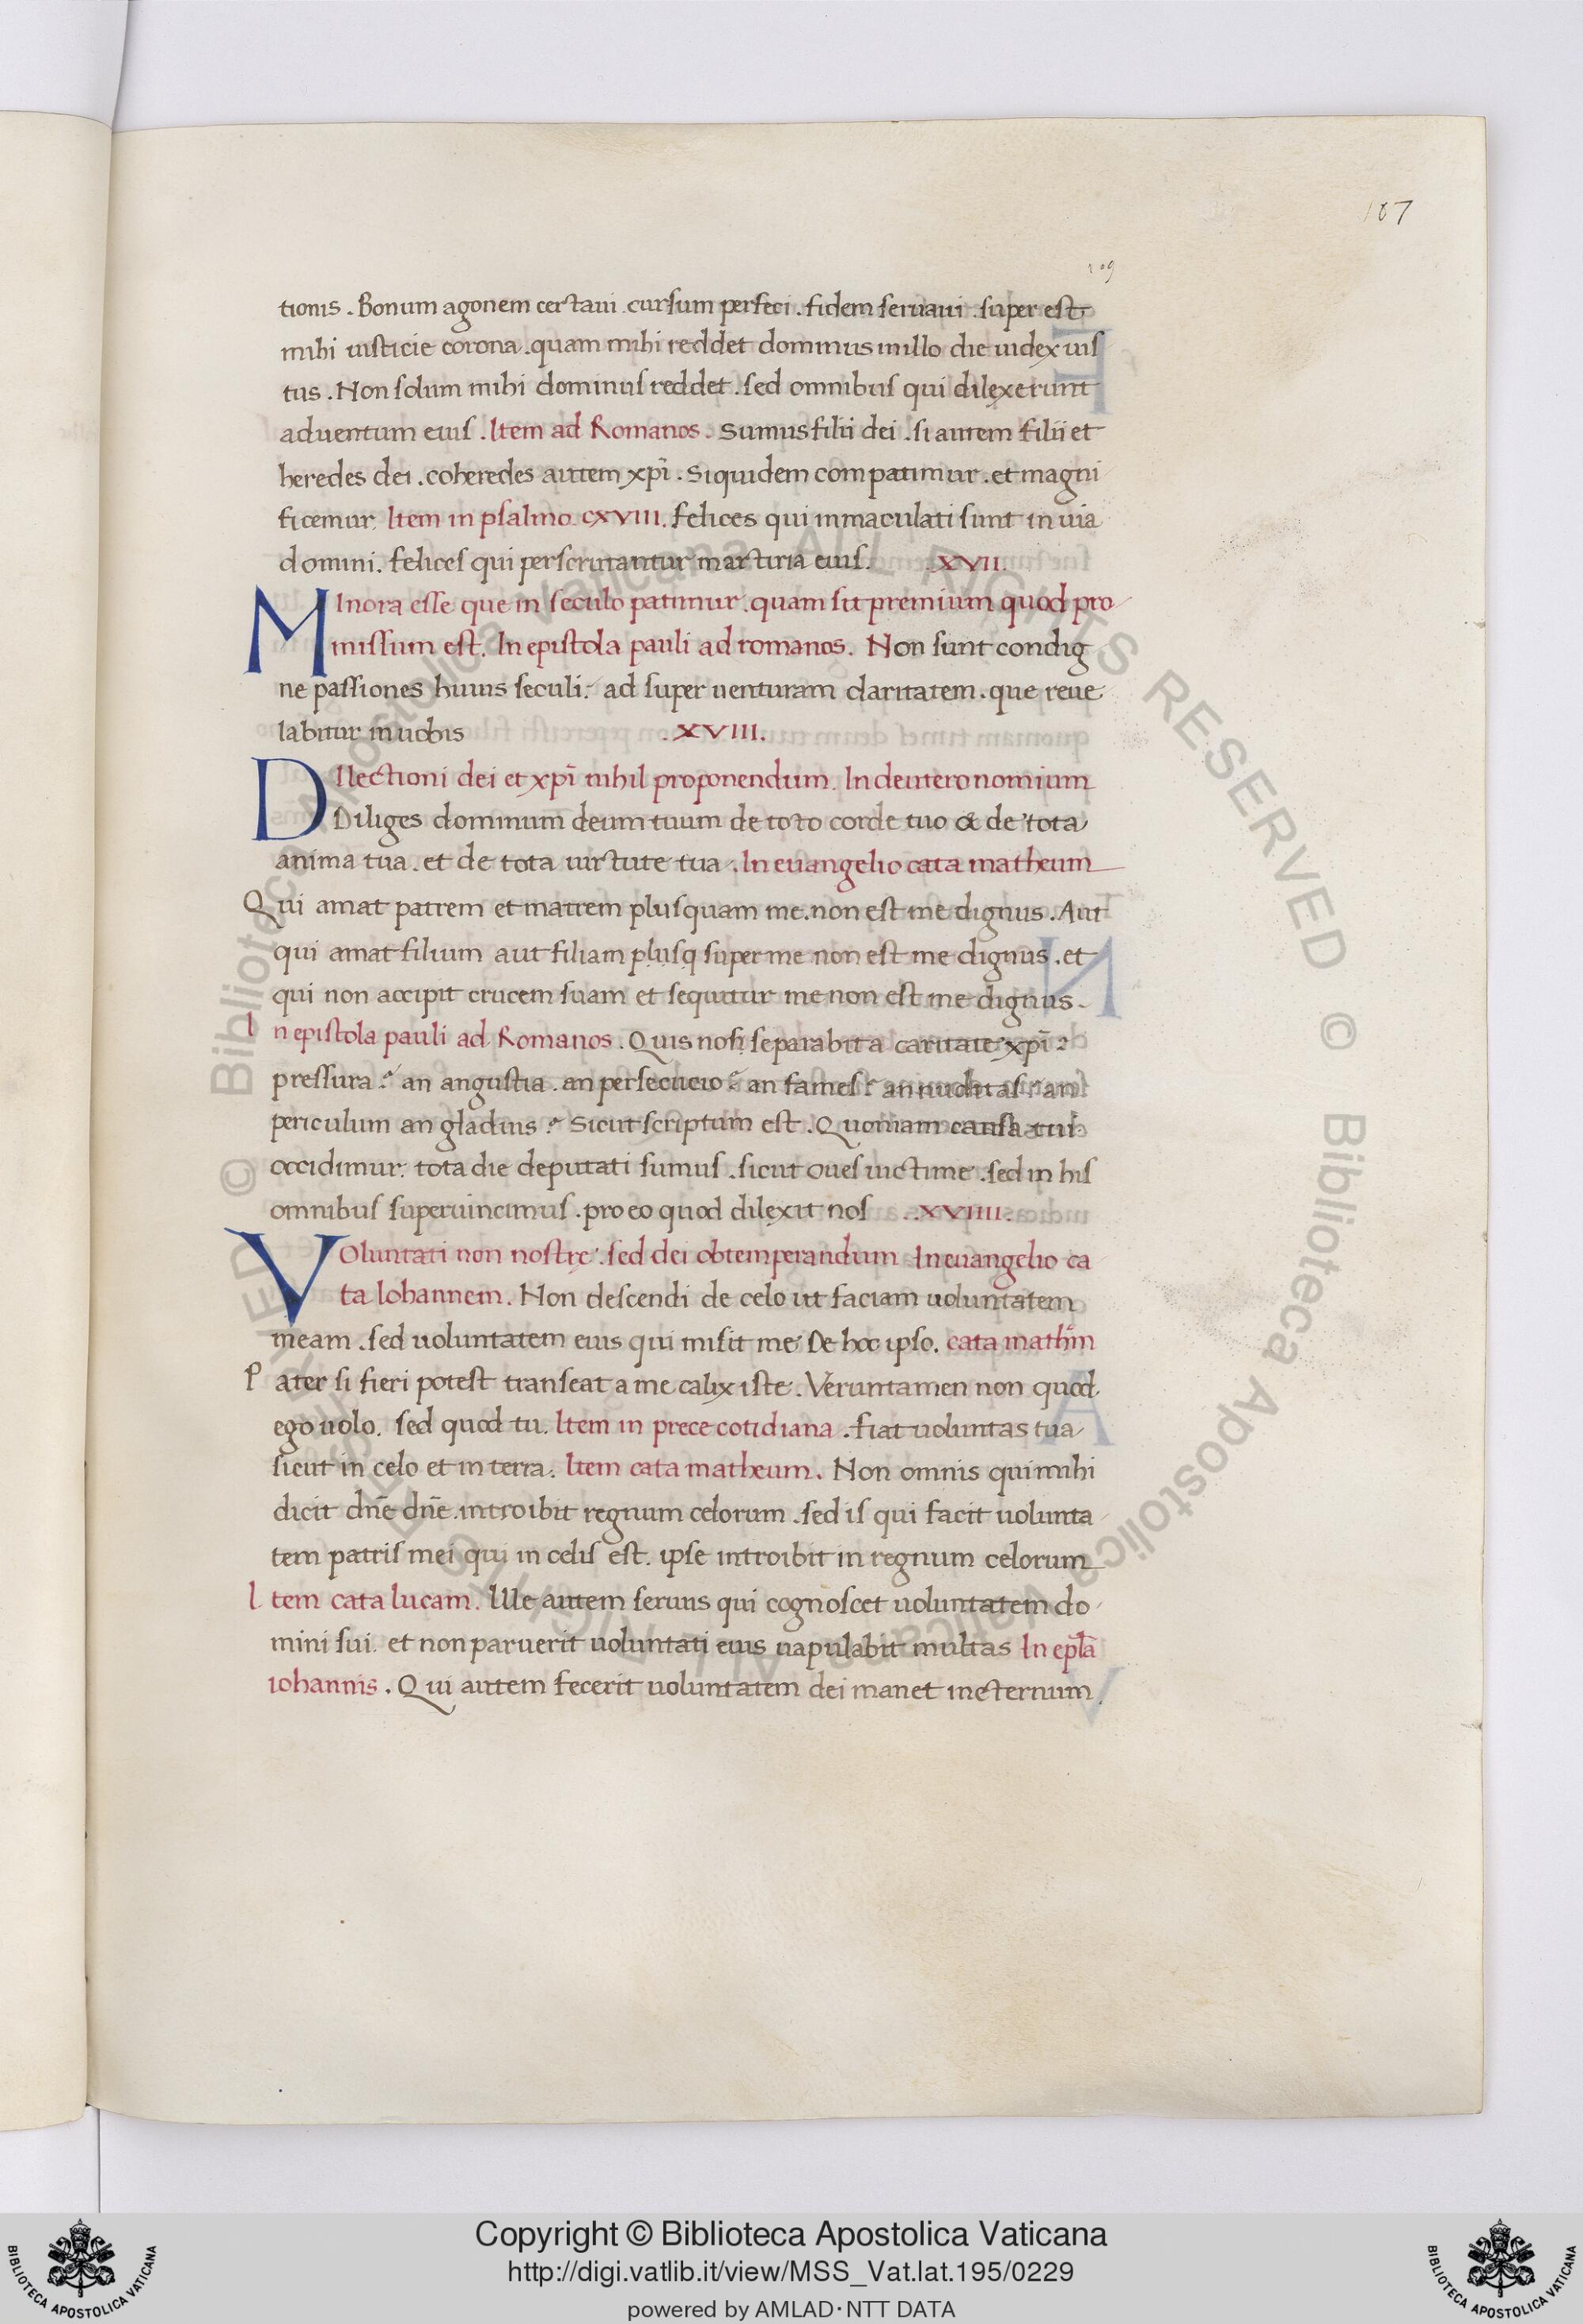 107
109
tionis . Bonum agonem certaui . cursum perfeci . fidem seruaui . super est
mihi iusticie corona . quam mihi reddet dominus in illo die iudex ius
tus . Non solum mihi dominus reddet . sed omnibus qui dilexerunt
aduentum eius . Item ad Romanos . Sumus filii dei . si autem filii et
heredes dei . coheredes autem xpi̅ . Siquidem compatimur . et magni
ficemur . Item in psalmo CXVIII. Felices qui inmaculati sunt in uia
domini . felices qui perscrutantur martiria eius . .XVII.
MInora esse que in seculo patimur . quam sit premium quod pro
missum est . In epistola pauli ad romanos . Non sunt condig
ne passiones huius seculi : ad super uenturam claritatem . que reue
labitur in uobis .XVIII.
DIlectioni dei et xpi̅ nihil proponendum . In deuteronomium
Diliges dominum deum tuum de toto corde tuo & de tota
anima tua . et de tota uirtute tua . In euangelio cata matheum
Qui amat patrem et matrem plusquam me . non est me dignus . Aut
qui amat filium aut filiam plusq super me non est me dignus . et
qui non accipit crucem suam et sequitur me non est me dignus .
In epistola pauli ad Romanos . Quis nos separabit a caritate xpi̅ ?
pressura ? an angustia . an persecucio ? an fames ? an nuditas ? an
periculum an gladius ? Sicut scriptum est . Quoniam causa tui
occidimur : tota die deputati sumus . sicut oues uictime . sed in his
omnibus superuincimus . pro eo quod dilexit nos .XVIIII.
VOluntati non nostrę . sed dei obtemperandum In euangelio ca
ta Iohannem . Non descendi de celo ut faciam uoluntatem
meam . sed uoluntatem eius qui misit me De hoc ipso . cata math̅m
Pater si fieri potest transeat a me calix iste . Veruntamen non quod
ego uolo . sed quod tu . Item in prece cotidiana . fiat uoluntas tua
sicut in celo et in terra . Item cata matheum . Non omnis qui mihi
dicit dn̅e dn̅e . introibit regnum celorum . sed is qui facit uolunta
tem patris mei qui in celis est . ipse introibit in regnum celorum
Item cata lucam . Ille autem seruus qui cognoscet uoluntatem do
mini sui . et non paruerit uoluntati eius uapulabit multas In epl̅a
iohannis . Qui autem fecerit uoluntatem dei manet in eternum .
© Biblioteca Apostolica Vaticana ALL RIGHTS RESERVED
© Biblioteca Apostolica Vaticana ALL RIGHTS RESERVED
Copyright © Biblioteca Apostolica Vaticana
http://digi.vatlib.it/view/MSS_Vat.lat.195/0229
powered by AMLAD·NTT DATA
BIBLIOTECA APOSTOLICA VATICANA
BIBLIOTECA APOSTOLICA VATICANA